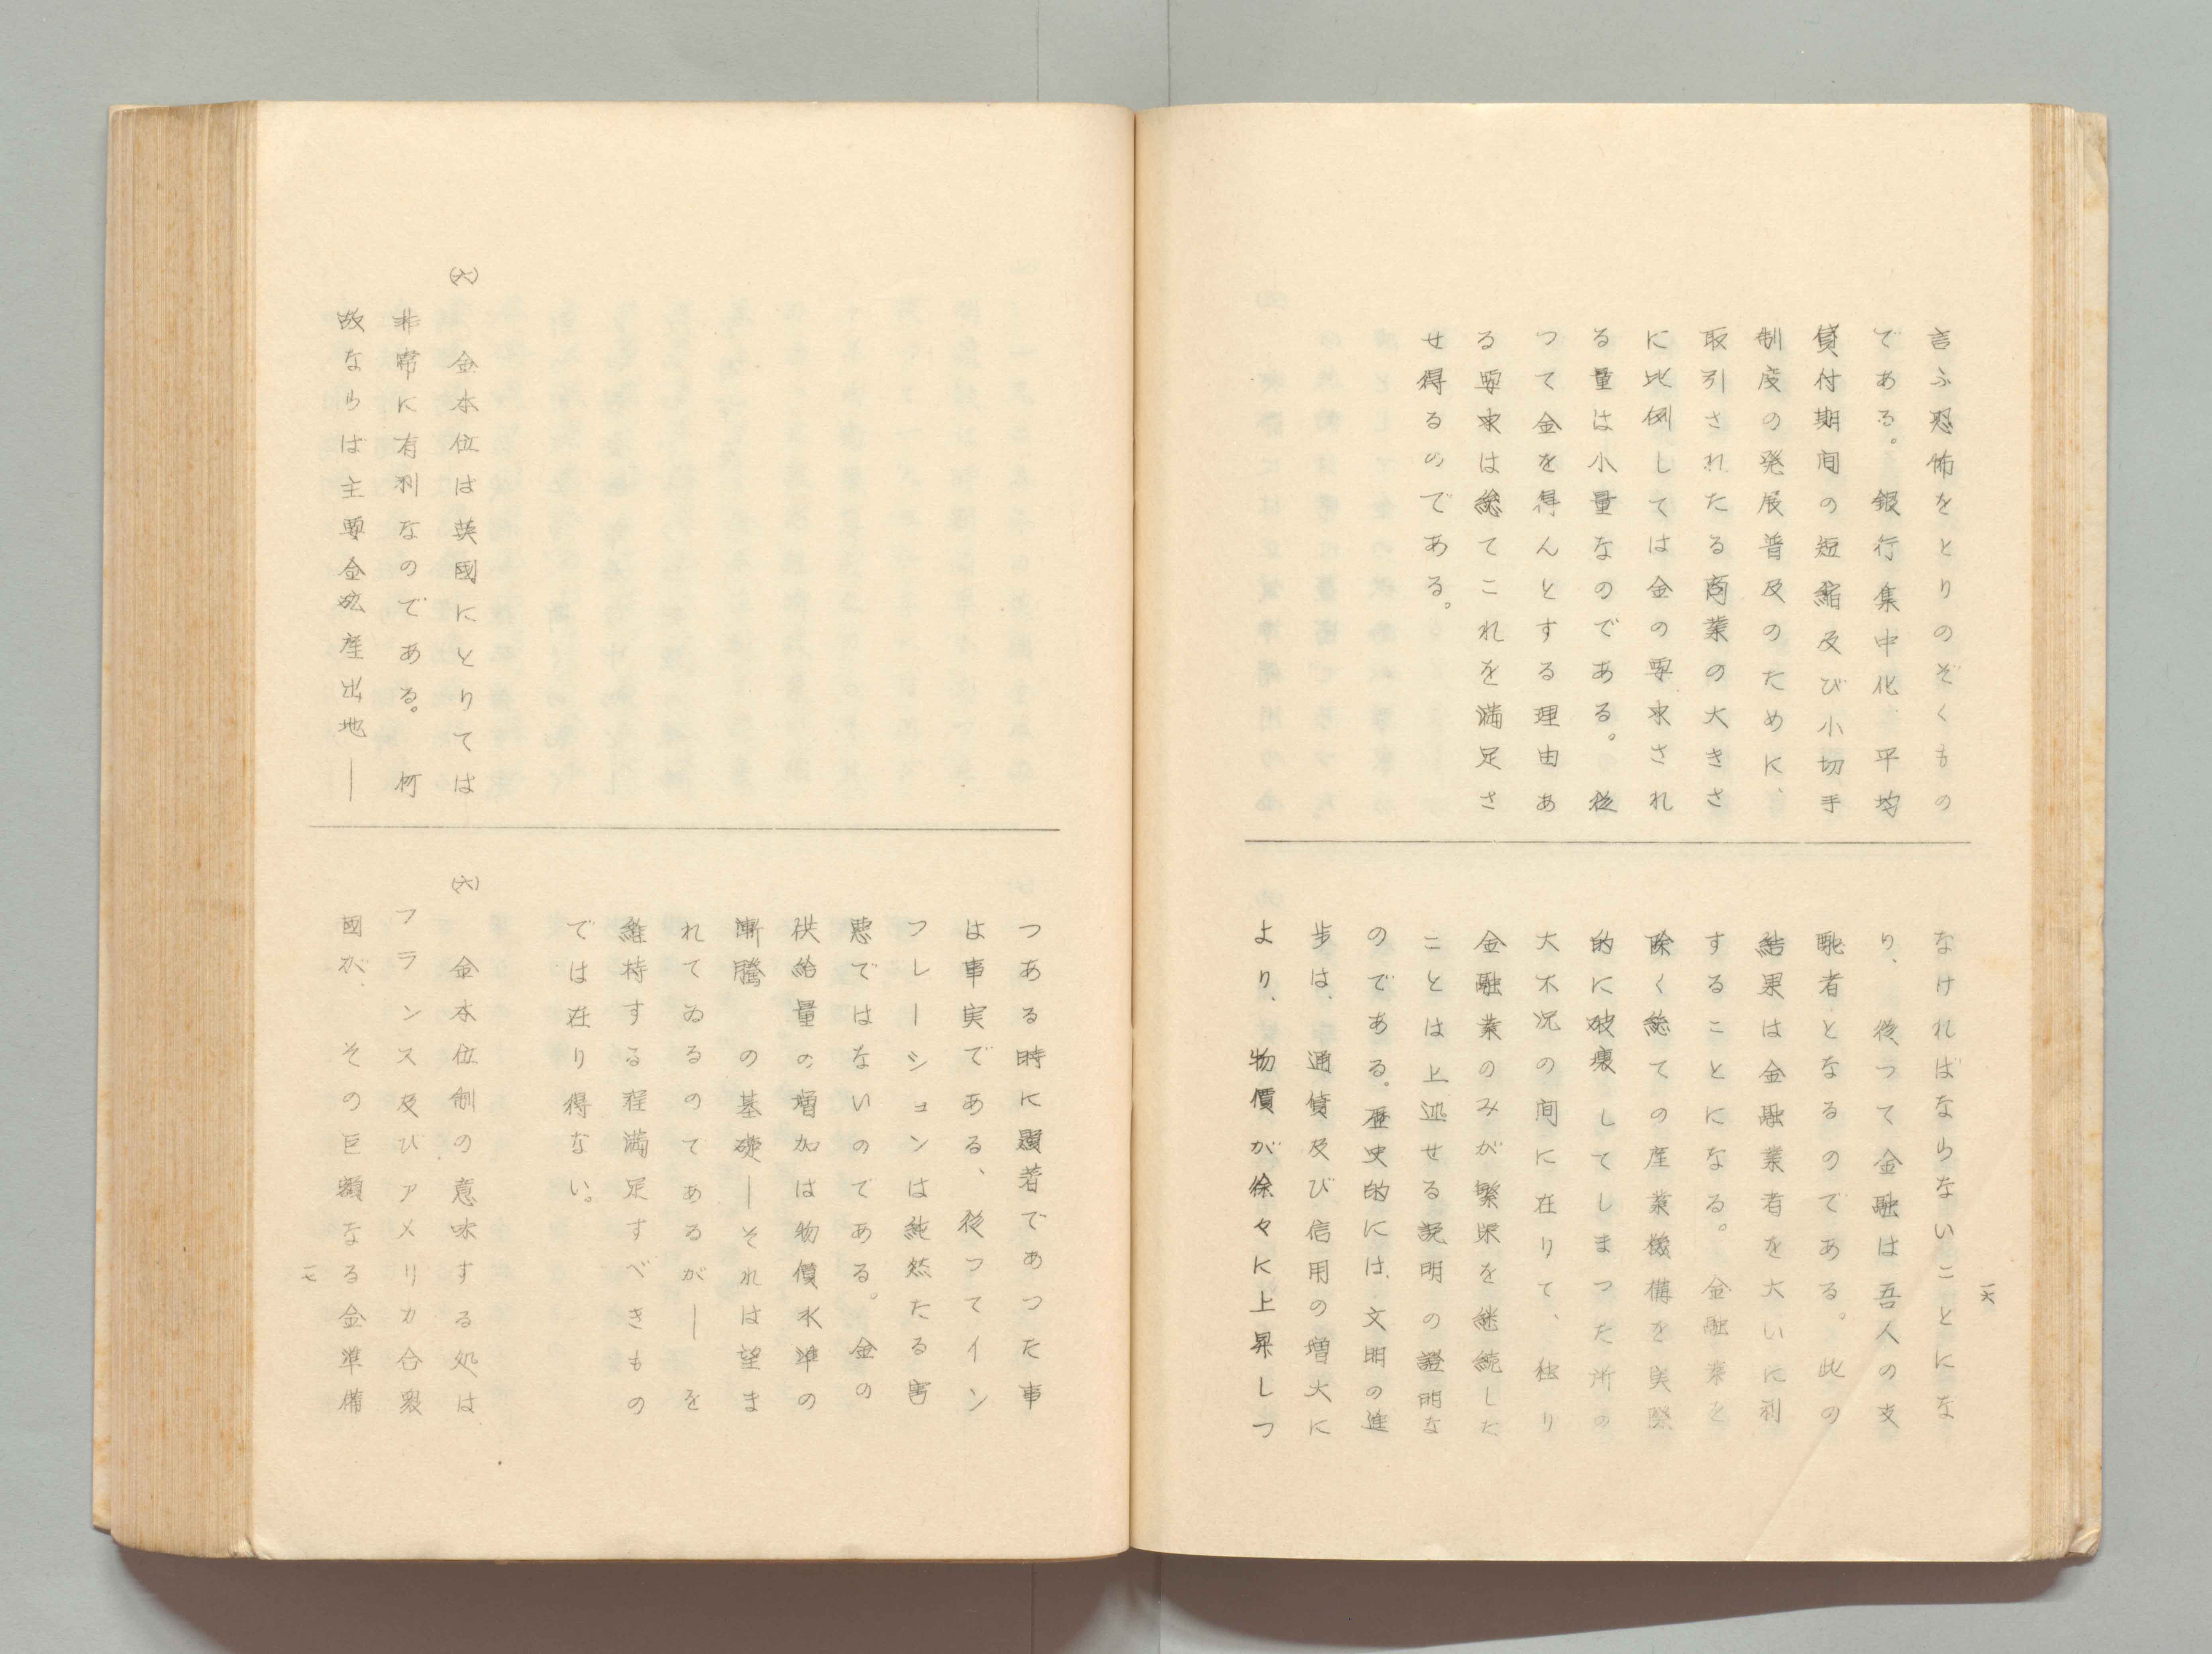 言ふ恐怖をとりのぞくもの
である。銀行集中化、平均
貸付期間の短縮及び小切手
制度の発展普及のために、
取引されたる商業の大きさ
に比例しては金の要求され
る量は小量なのである。従
つて金を得んとする理由あ
る要求は総てこれを満足さ
せ得るのである。
一六
なければならないことにな
り、従つて金融は吾人の支
配者となるのである。此の
結果は金融業者を大いに利
することになる。金融業を
除く総ての産業機構を実際
的に破壊してしまつた所の
大不況の間に在りて、独り
金融業のみが繁栄を継続した
ことは上述せる説明の證明な
のである。歴史的には、文明の進
歩は、通貨及び信用の増大に
より、物價が徐々に上昇しつ
つある時に顕著であつた事
は事実である、従つてイン
フレーションは純然たる害
悪ではないのである。金の
供給量の増加は物價水準の
漸騰の基礎―それは望ま
れてゐるのてあるが―を
維持する程満足すべきもの
では在り得ない。
(六) 金本位は英國にとりては
非常に有利なのである。何
故ならは主要金鉱産出地―
(六) 金本位制の意味する処は
フランス及びアメリカ合衆
國が、その巨額なる金準備
一七